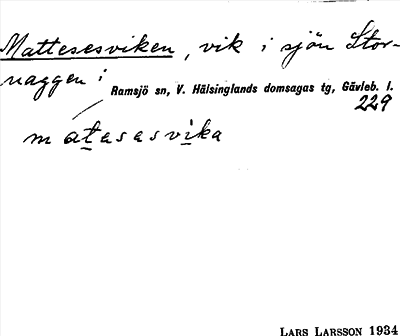 Mattesesviken, vik i sjön Stor-
naggen i
Ramsjö sn, V. Hälsinglands domsagas tg, Gävleb. l.
229
matasasvika
LARS LARSSON 1934